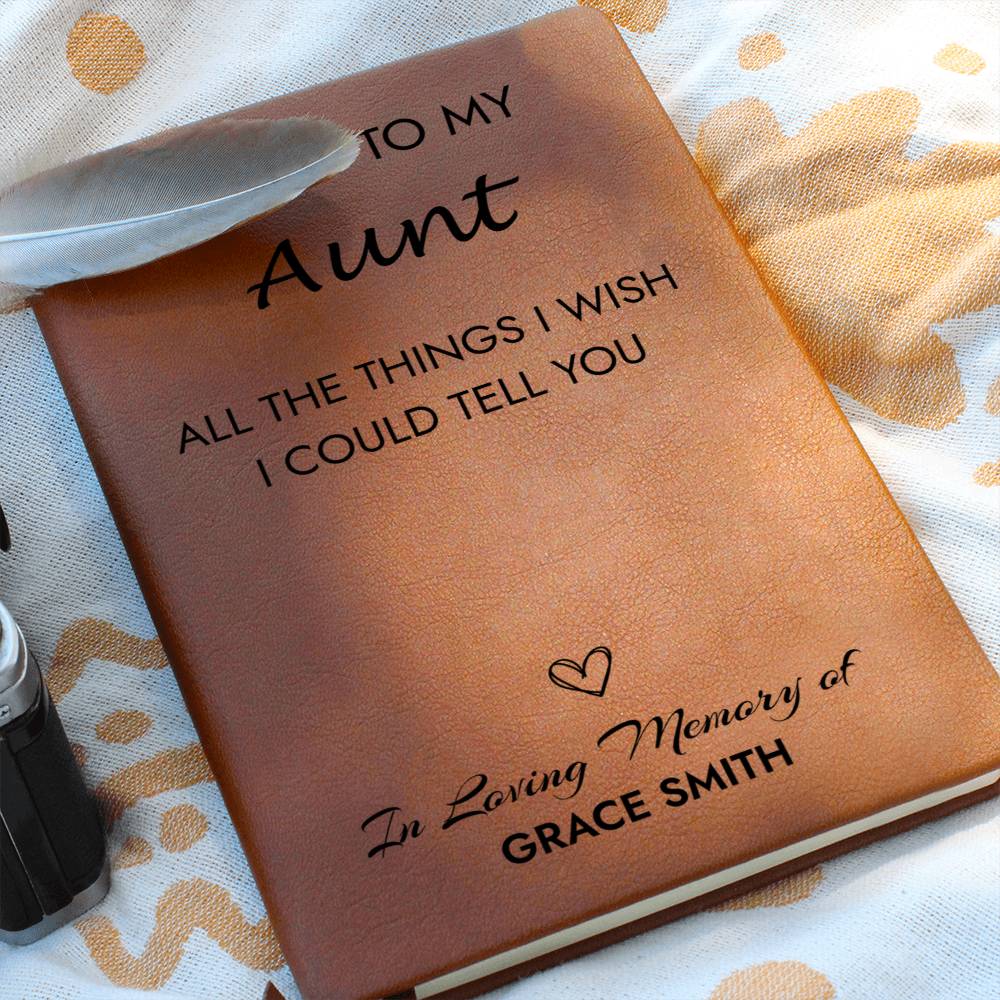 TO MY
Aunt
ALL THE THINGS I WISH
I COULD TELL YOU
In Loving Memory of
GRACE SMITH